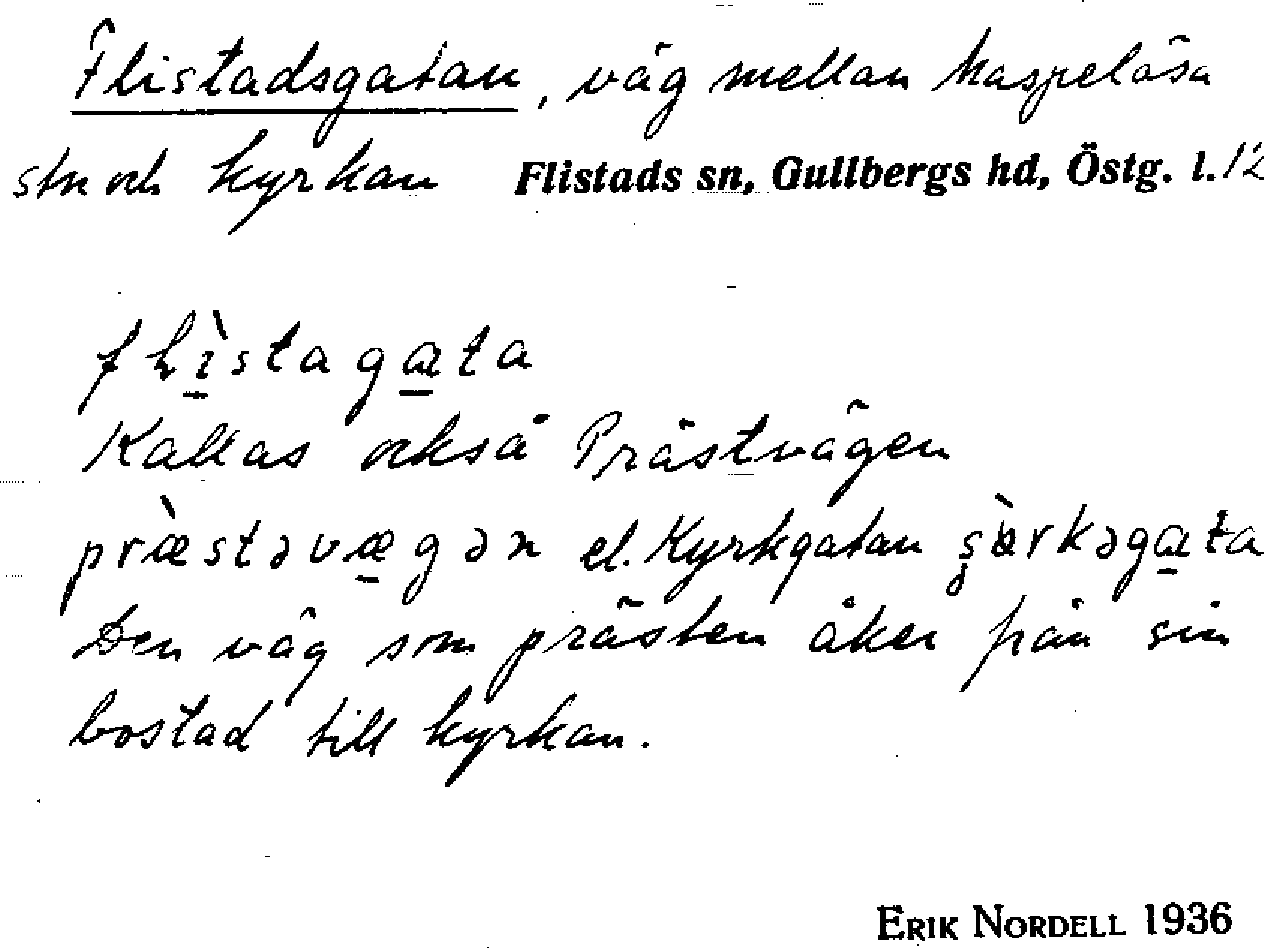 Flistadsgatan, väg mellan Maspelösa
stn och kyrkan Flistads sn, Gullbergs hd, Östg. l. 12
flìstagata
Kallas också Prästvägen
præ̀stəvægən el. Kyrkgatan
Den väg som prästen åker från sin
bostad till kyrkan.
ERIK NORDELL 1936